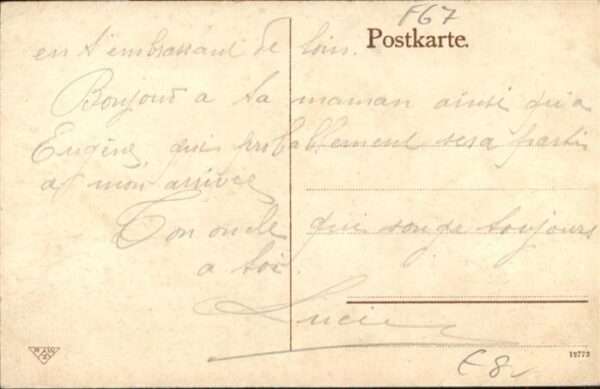 F67
Postkarte.
en t'embrassant de loin.
Bonjour a ta maman ainsi qu'a
Eugène, qui probablement sera partie
at mon arrivée
Ton oncle qui songe toujours
a toi.
Lucien
12773
€8